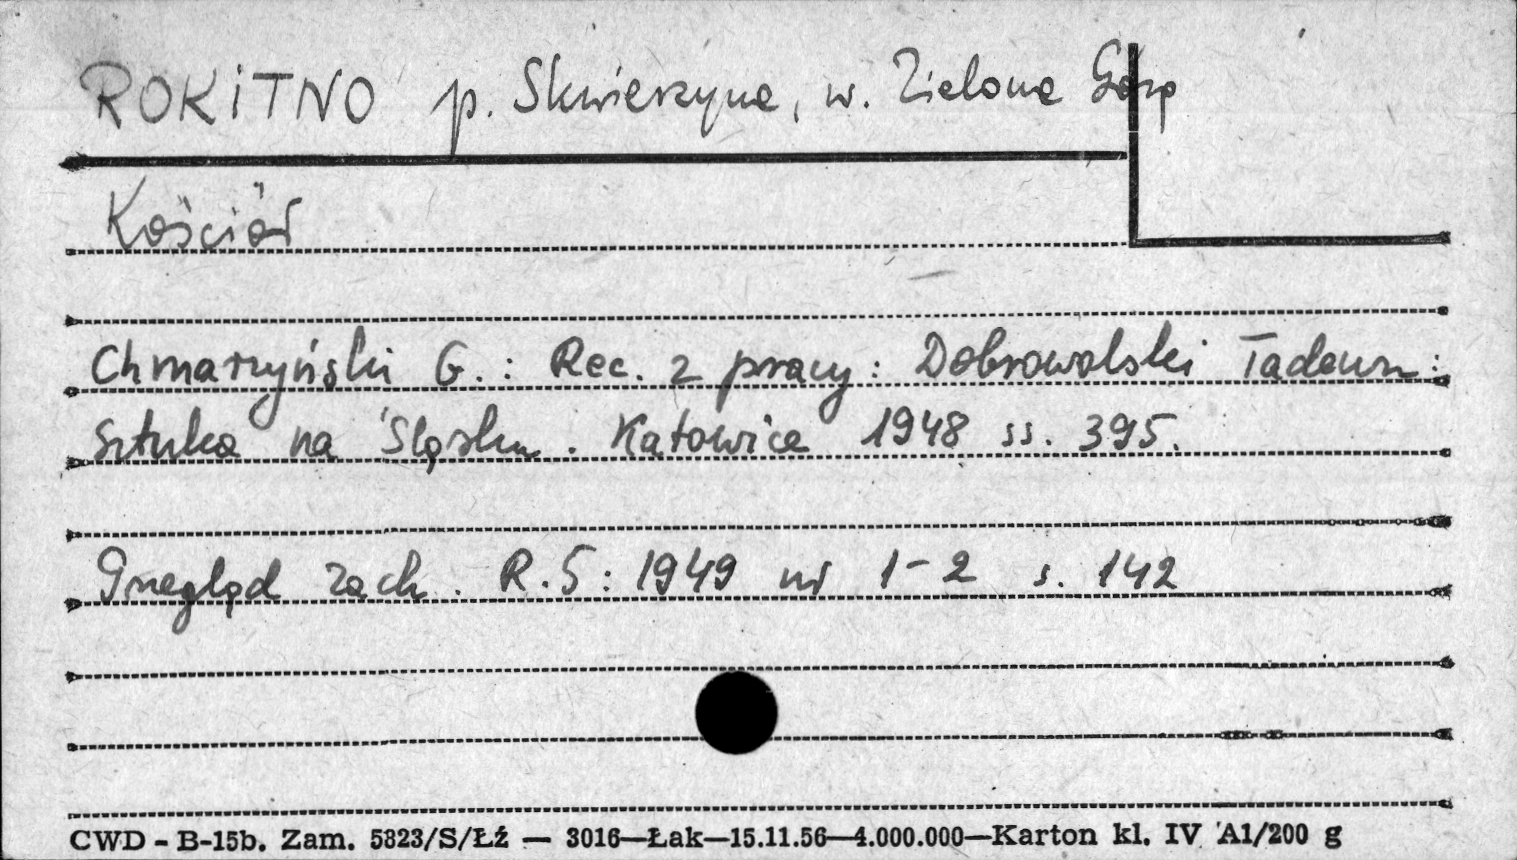 ROKITNO p. Skwierzyna, w. Zielona Góra
Kościół
Chmarzyński G.: Rec. z pracy: Dobrowolski Tadeusz:
Sztuka na Śląsku. Katowice 1948 ss. 395.
Przegląd Zach. R.5: 1949 nr 1-2 s. 142
CWD - B-15b. Zam. 5823/S/ŁŹ — 3016—Łak—15.11.56—4.000.000—Karton kl. IV A1/200 g